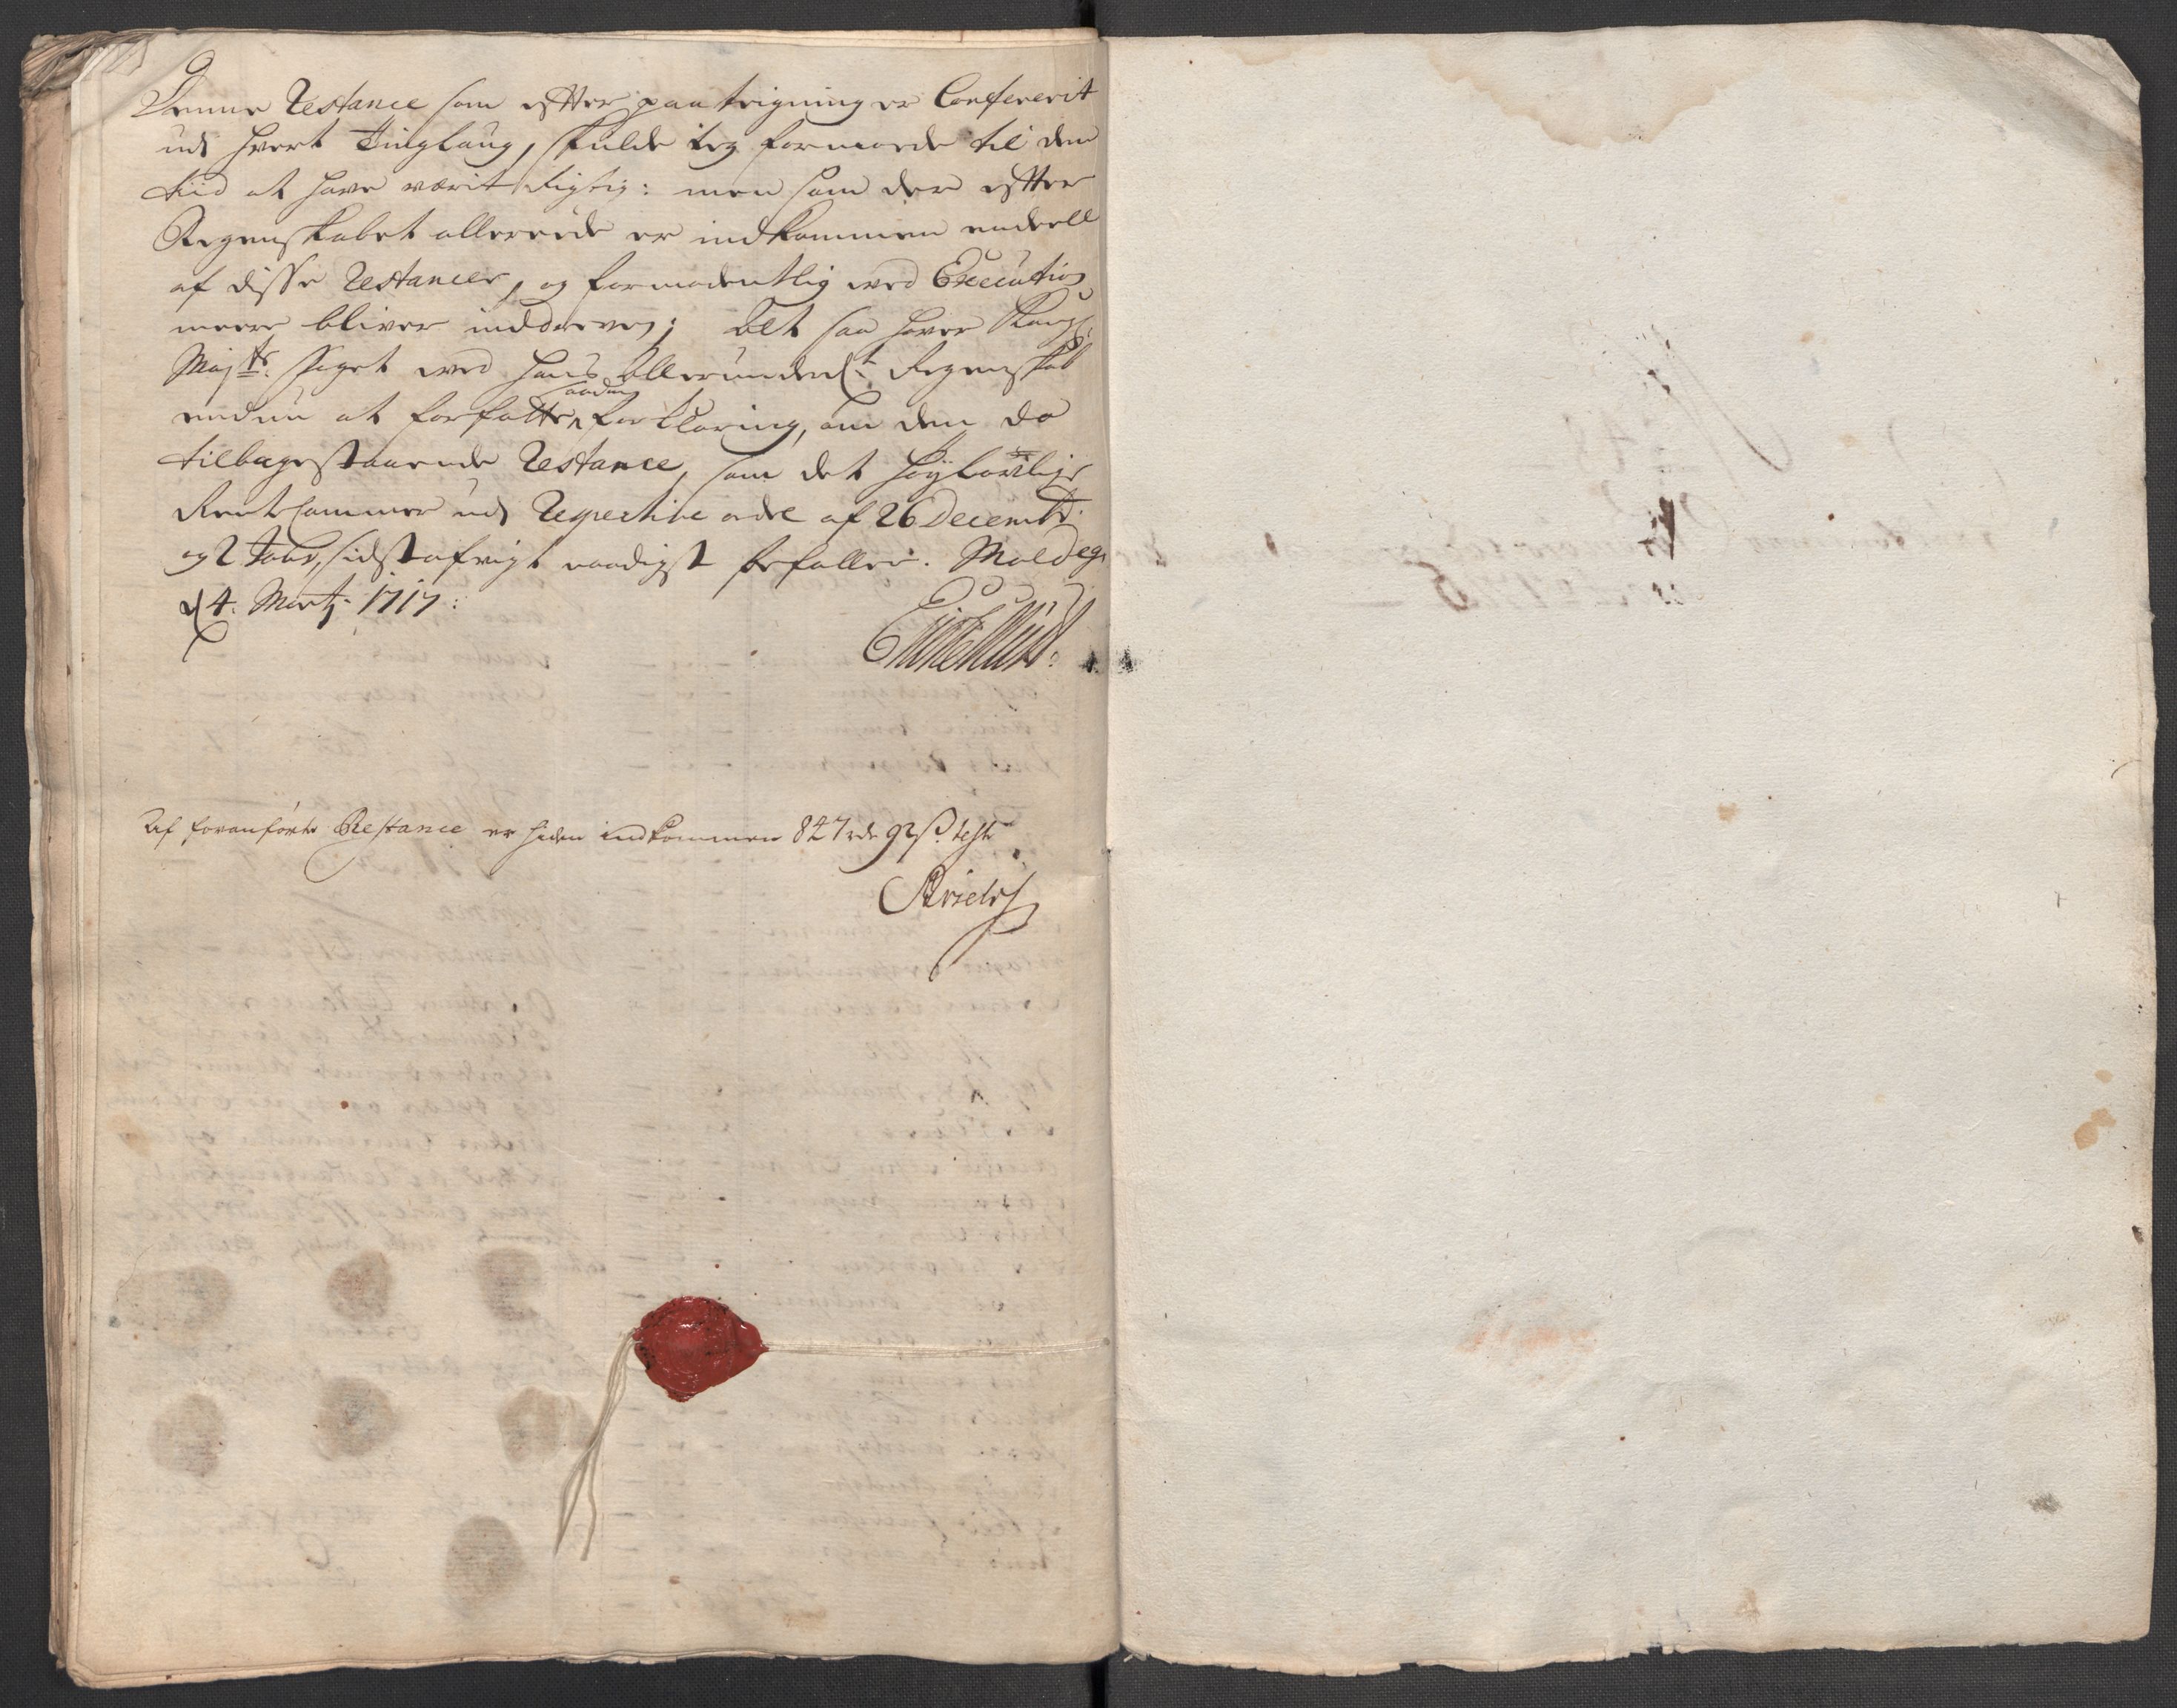 Denne Restance som efter paateigning er Confererit
udj hvert Tinglaug, skulde ieg formoede til den
tiid at have værit Rigtig: men som der efter
Regenskabet allereede er indkommen endeell
af disse Restancer, og formodentlig ved Execution
meere bliver inddreven; Alt saa haver Kongl:
Majts. foget ved hans Allerunderd:t Regenskab
endnu at forfatte anden forklaring, om den da
tilbagestaaende Restance, som det Høylovlige
RenteCammer udj Respective ordre af 26 Decembr.
og 2 Janr. sidstafvigt naadigst befaller. Moldeg.
d 4. Marti 1717:
Af foranførte Restance er siden indkommen 847 rdr 92 ß. teste